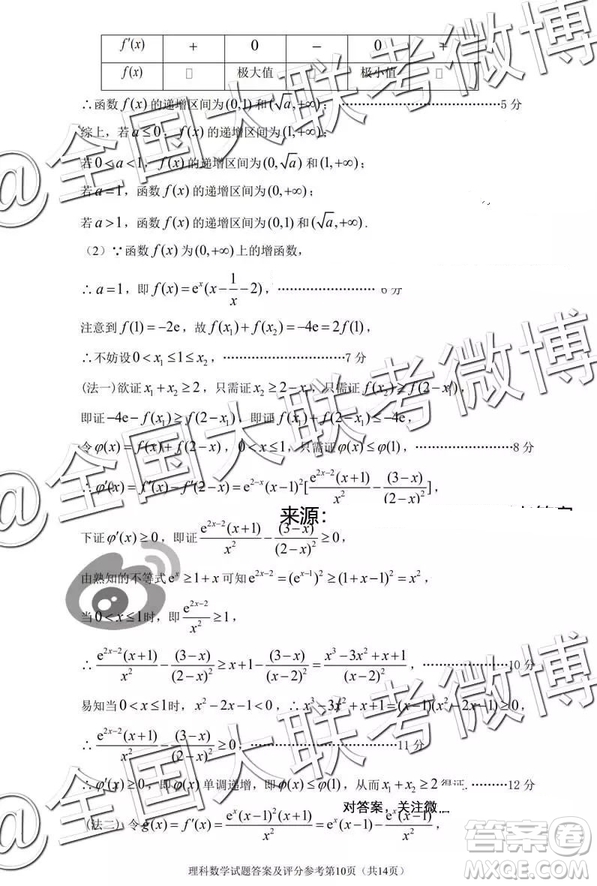 f′(x) + 0 − 0 +
f(x) 极大值 极小值
∴函数 f(x) 的递增区间为(0,1) 和(√a,+∞)；……………………5 分
综上，若 a≤0，f(x) 的递增区间为(1,+∞)；
若 0<a<1，f(x) 的递增区间为(0,√a) 和(1,+∞)；
若 a=1，函数 f(x) 的递增区间为(0,+∞)；
若 a>1，函数 f(x) 的递增区间为(0,1) 和(√a,+∞).
（2）∵函数 f(x) 为(0,+∞) 上的增函数，
∴a=1，即 f(x)=eˣ(x−1/x−2)，……………………6 分
注意到 f(1)=−2e，故 f(x₁)+f(x₂)=−4e=2f(1)，
∴不妨设 0<x₁≤1≤x₂，……………………7 分
(法一)欲证 x₁+x₂≥2，只需证 x₂≥2−x₁，只需证 f(x₂)≥f(2−x₁)，
即证−4e−f(x₁)≥f(2−x₁)，即证 f(x₁)+f(2−x₁)≤−4e，
令 φ(x)=f(x)+f(2−x)，0<x≤1，只需证 φ(x)≤φ(1)，……………………8 分
∴φ′(x)=f′(x)−f′(2−x)=e²⁻ˣ(x−1)²[e²ˣ⁻²(x+1)/x²−(3−x)/(2−x)²]，
来源：
下证 φ′(x)≥0，即证 e²ˣ⁻²(x+1)/x²−(3−x)/(2−x)²≥0，
由熟知的不等式 eˣ≥1+x 可知 e²ˣ⁻²=(eˣ⁻¹)²≥(1+x−1)²=x²，
当 0<x≤1时，即 e²ˣ⁻²/x²≥1，
∴e²ˣ⁻²(x+1)/x²−(3−x)/(2−x)²≥x+1−(3−x)/(x−2)²=(x³−3x²+x+1)/(x−2)²，……………………10 分
易知当 0<x≤1时，x²−2x−1<0，∴x³−3x²+x+1=(x−1)(x²−2x−1)≥0，
∴e²ˣ⁻²(x+1)/x²−(3−x)/(2−x)²≥0，……………………11 分
∴φ′(x)≥0，即 φ(x) 单调递增，即 φ(x)≤φ(1)，从而 x₁+x₂≥2 得证.……………………12 分
对答案，关注微
(法二) 令 g(x)=f′(x)=eˣ(x−1)²(x+1)/x²，
理科数学试题答案及评分参考第10页（共14页）
@全国大联考微博
@全国大联考微博
@全国大联考微博
答案圈
MXQE.COM